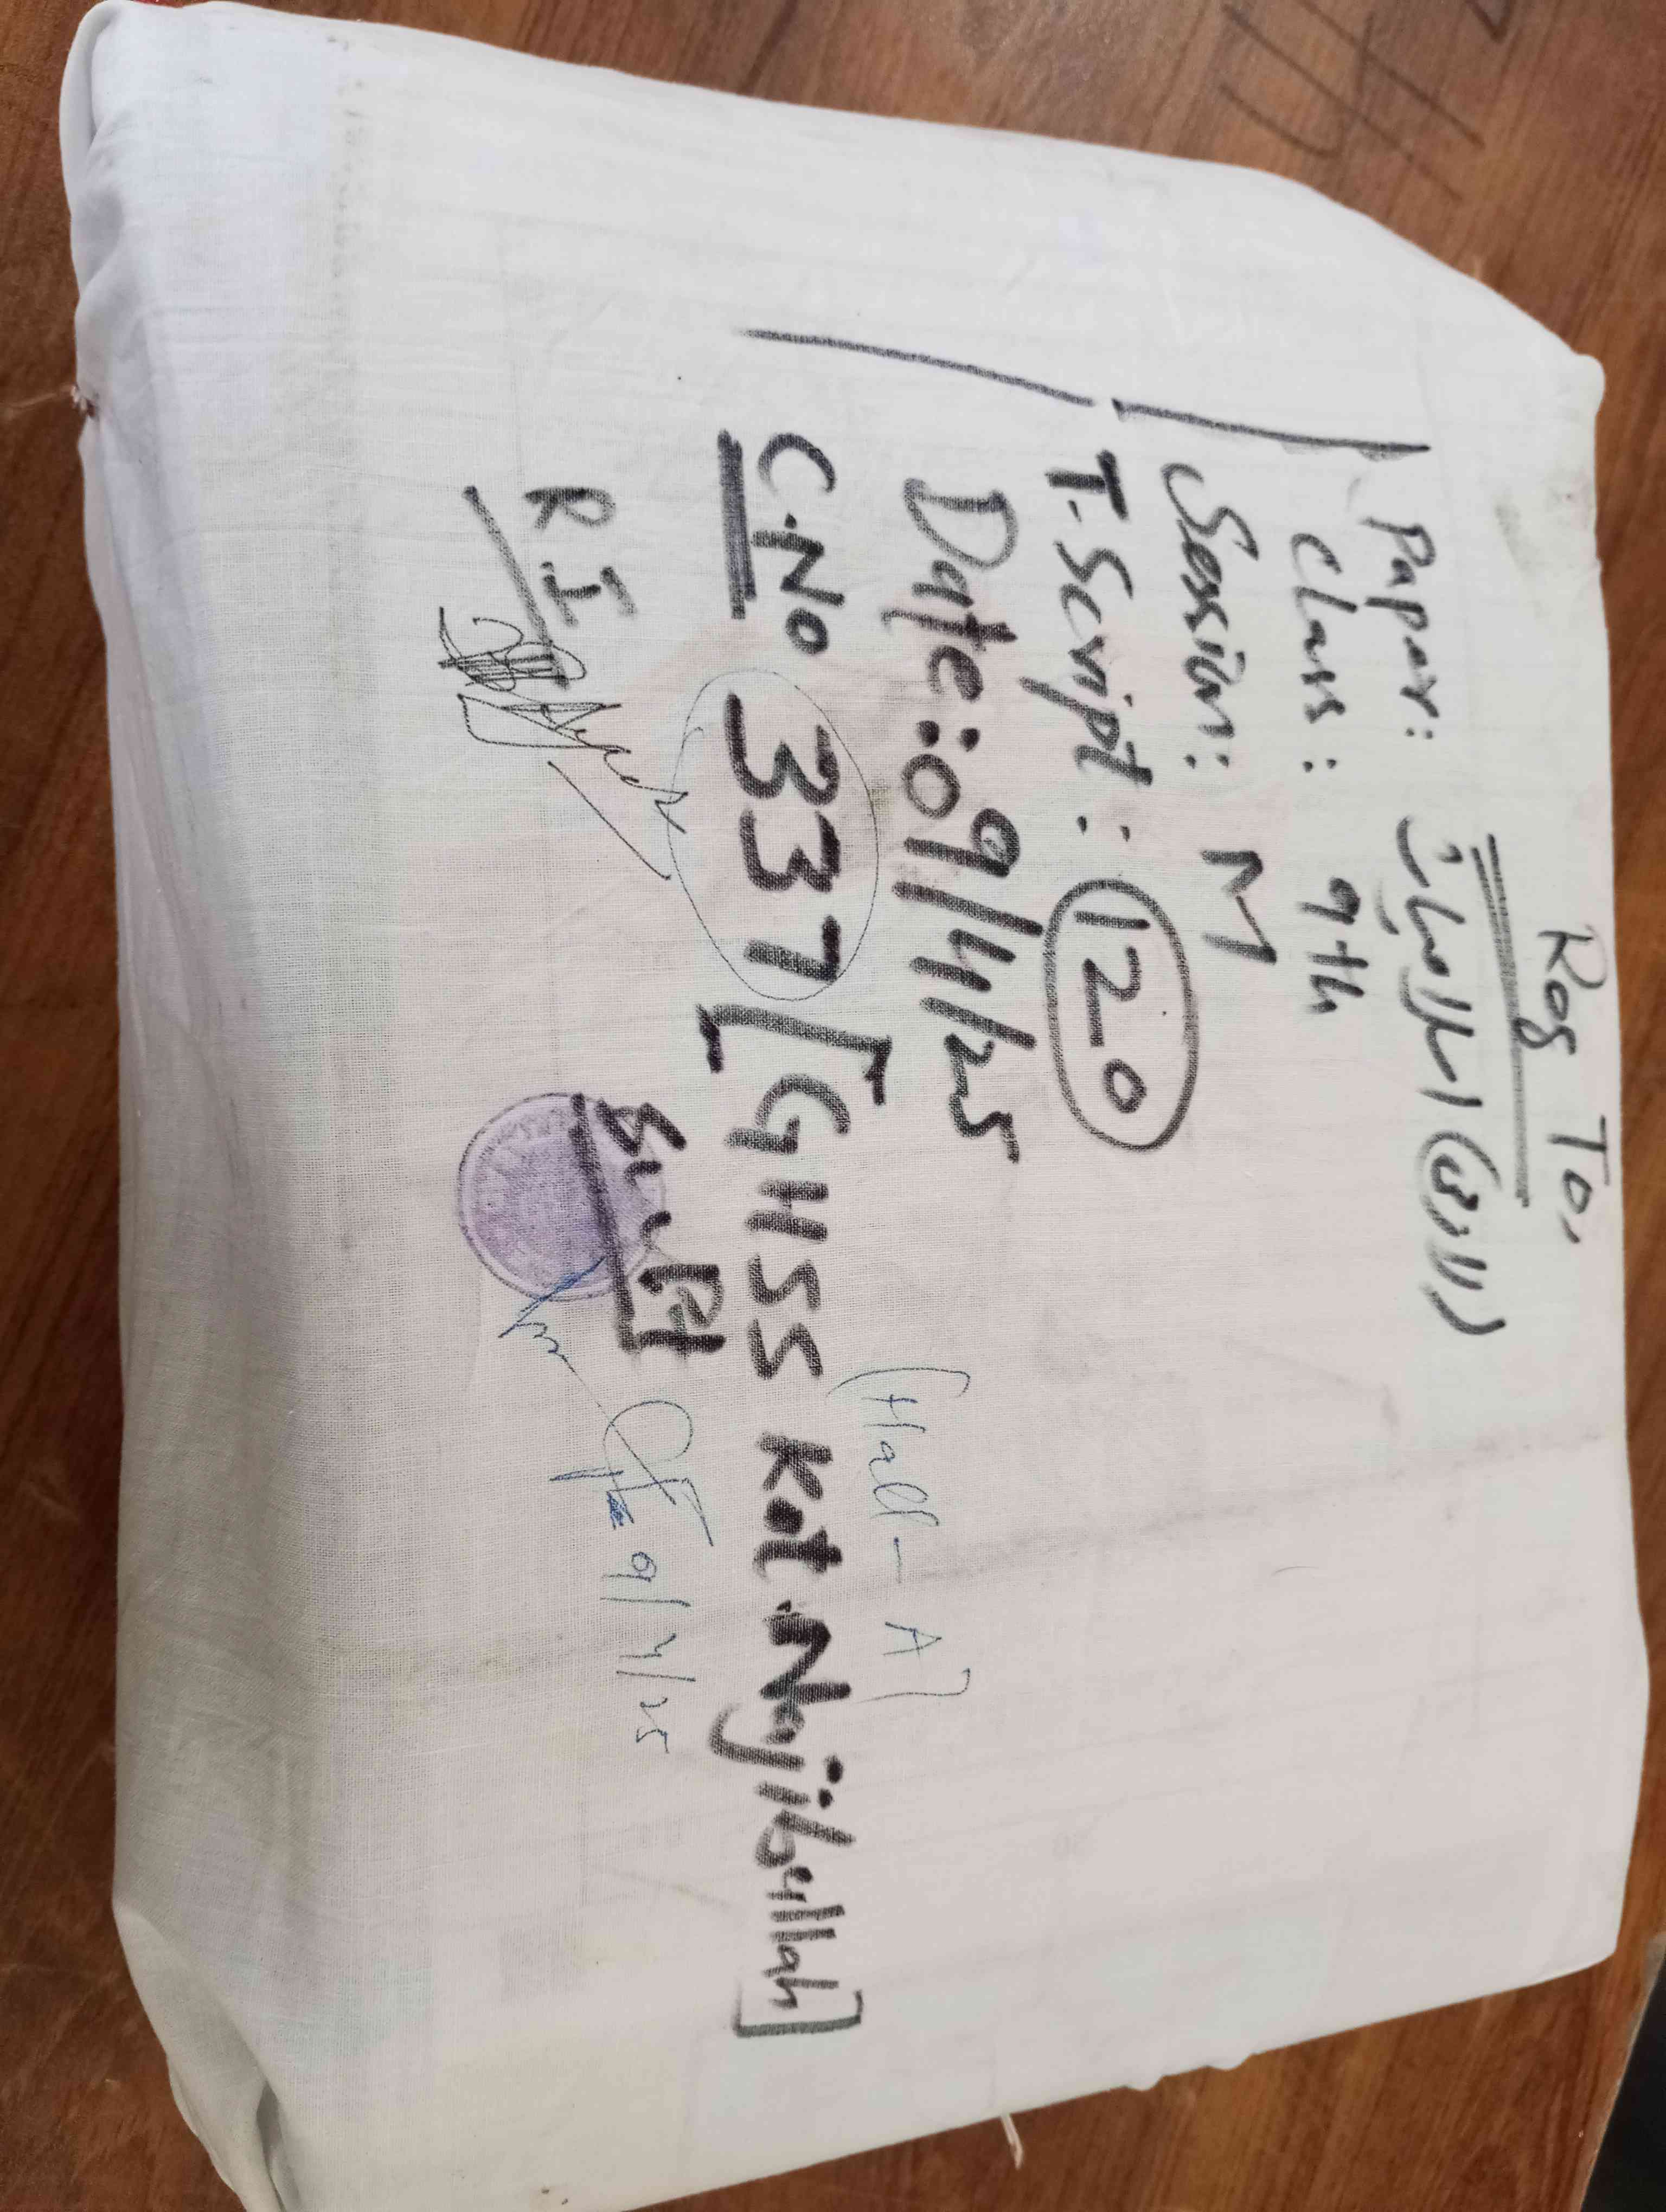 Rog To,
Paper: اسلامیات (لازمی)
Class: 9th
Session: M
T.Script: 120
Date: 09/4/25
(Hall - A)
C.No 337 [GHSS Kot Najibullah]
R.I
9/4/25